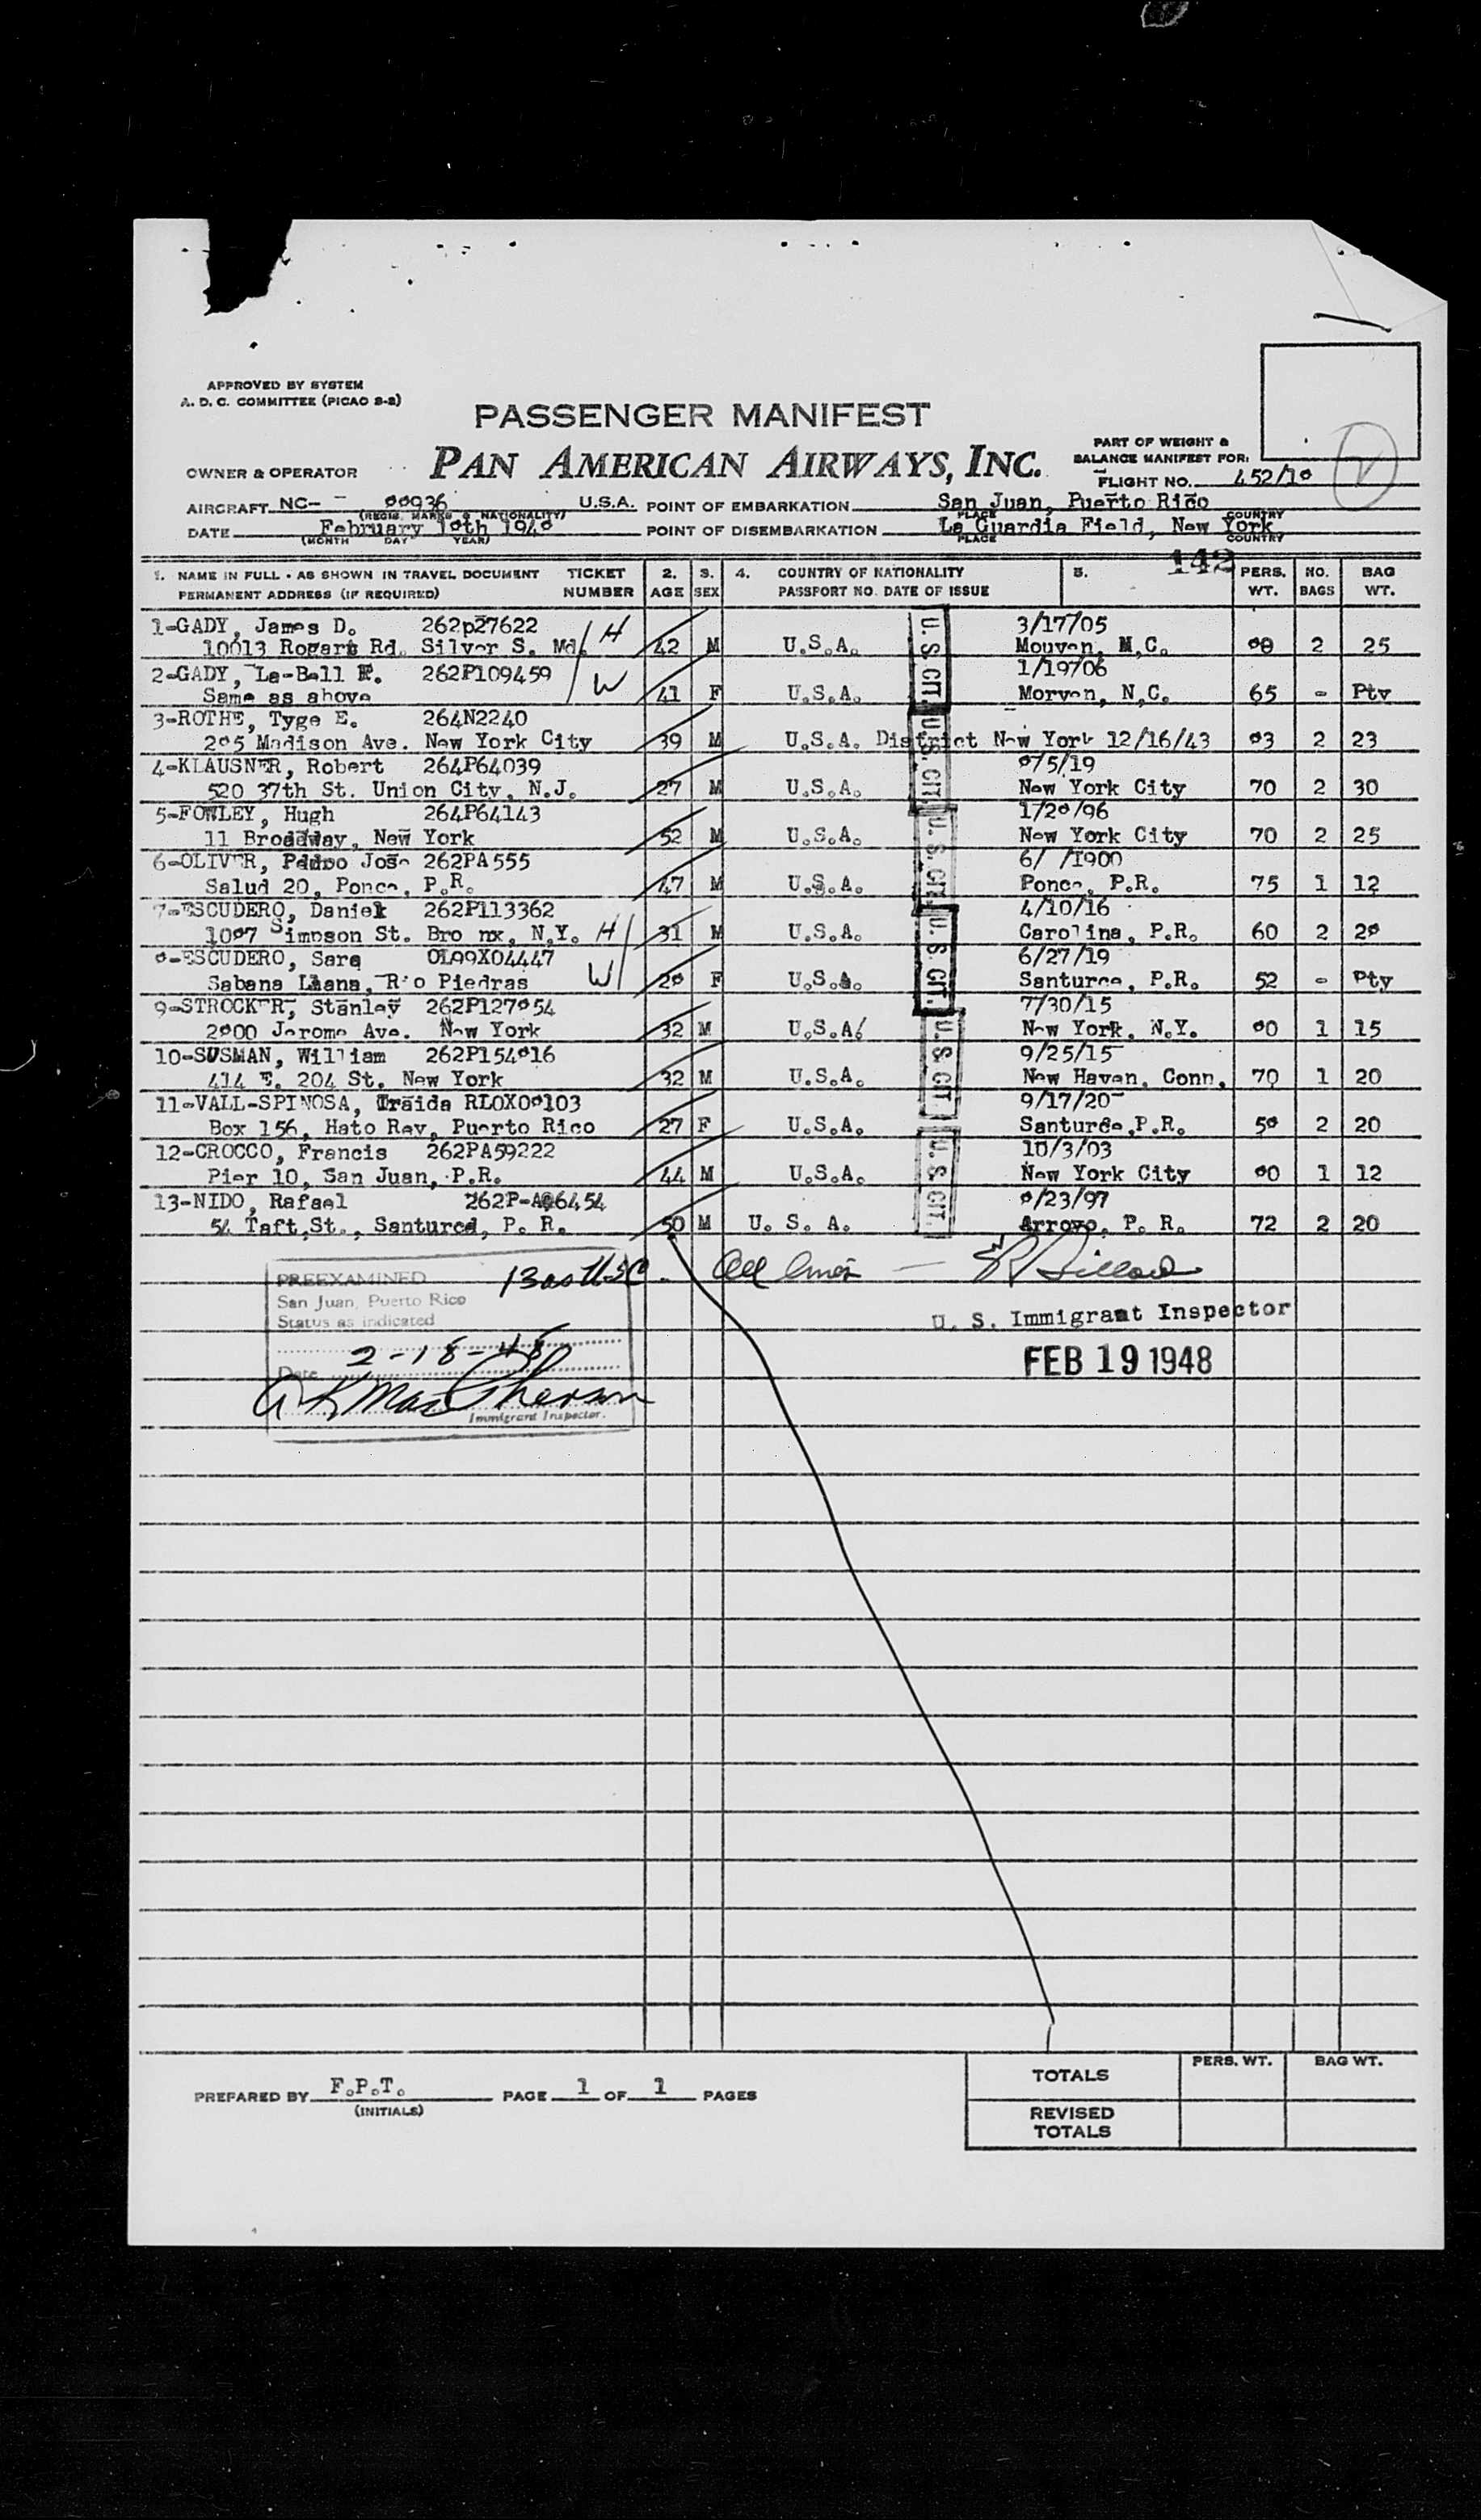 APPROVED BY SYSTEM
A. D. C. COMMITTEE (PICAO S-2)
PASSENGER MANIFEST
PART OF WEIGHT &
BALANCE MANIFEST FOR:
OWNER & OPERATOR PAN AMERICAN AIRWAYS, INC.
FLIGHT NO. 452/18
AIRCRAFT NC- 88936 U.S.A. POINT OF EMBARKATION San Juan, Puerto Rico
(REGIS. MARKS & NATIONALITY) PLACE COUNTRY
DATE February 18th 1948 POINT OF DISEMBARKATION La Guardia Field, New York
(MONTH DAY YEAR) PLACE COUNTRY
142
1. NAME IN FULL - AS SHOWN IN TRAVEL DOCUMENT TICKET 2. 3. 4. COUNTRY OF NATIONALITY 5. PERS. NO. BAG
PERMANENT ADDRESS (IF REQUIRED) NUMBER AGE SEX PASSPORT NO. DATE OF ISSUE WT. BAGS WT.
1-GADY, James D. 262p27622 H U. S. CIT. 3/17/05
10013 Rogart Rd. Silver S. Md. 42 M U.S.A. Mouven, N.C. 80 2 25
2-GADY, La-Bell F. 262P109459 W 1/19/06
Same as above 41 F U.S.A. Morven, N.C. 65 - Pty
3-ROTHE, Tyge E. 264N2240 U. S. CIT.
285 Madison Ave. New York City 39 M U.S.A. District New York 12/16/43 83 2 23
4-KLAUSNER, Robert 264P64039 8/5/19
520 37th St. Union City, N.J. 27 M U.S.A. New York City 70 2 30
5-FOWLEY, Hugh 264P64143 U. S. CIT. 1/28/96
11 Broadway, New York 52 M U.S.A. New York City 70 2 25
6-OLIVER, Pedro Jose 262PA555 6/ /1900
Salud 20, Ponce, P.R. 47 M U.S.A. Ponce, P.R. 75 1 12
7-ESCUDERO, Daniel 262P113362 U. S. CIT. 4/10/16
1087 Simpson St. Bro nx, N.Y. H 31 M U.S.A. Carolina, P.R. 60 2 28
8-ESCUDERO, Sara OLA9X04447 W 6/27/19
Sabana Llana, Rio Piedras 28 F U.S.A. Santurce, P.R. 52 - Pty
9-STROCKER, Stanley 262P127854 U. S. CIT. 7/30/15
2800 Jerome Ave. New York 32 M U.S.A. New York, N.Y. 80 1 15
10-SUSMAN, William 262P154816 9/25/15
414 E. 204 St. New York 32 M U.S.A. New Haven, Conn. 70 1 20
11-VALL-SPINOSA, Iraida RLOX08103 9/17/20
Box 156, Hato Rey, Puerto Rico 27 F U.S.A. Santurce, P.R. 58 2 20
12-CROCCO, Francis 262PA59222 U. S. CIT. 10/3/03
Pier 10, San Juan, P.R. 44 M U.S.A. New York City 80 1 12
13-NIDO, Rafael 262P-A86454 8/23/97
54 Taft St., Santurce, P. R. 50 M U. S. A. Arroyo, P. R. 72 2 20
PREEXAMINED 13 as U.S.C.
San Juan, Puerto Rico
Status as indicated
U. S. Immigrant Inspector
Date 2-18-48
FEB 19 1948
Immigrant Inspector.
PERS. WT. BAG WT.
TOTALS
PREPARED BY F.P.T. PAGE 1 OF 1 PAGES
(INITIALS)
REVISED
TOTALS